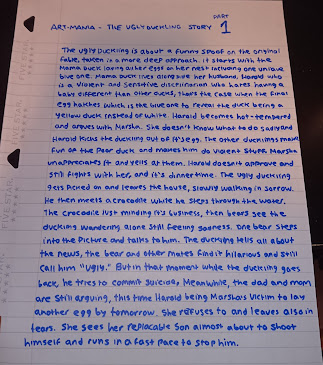 PART
ART-MANIA - THE UGLY DUCKLING STORY 1
The Ugly Duckling is about a funny spoof on the original
fable, taken in a more deep approach. It starts with the
Mama duck laying other eggs on her nest including one unique
blue one. Mama duck lives alongside her husband, Harold who
is a violent and sensitive discrimination who hates having a
baby different than other ducks, that's the case when the final
egg hatches which is the blue one to reveal the duck being a
yellow duck instead of white. Harold becomes hot-tempered
and argues with Marsha. She doesn't know what to do sadly and
Harold kicks the duckling out of it's egg. The other ducklings make
fun of the poor duck and makes him do violent stuff. Marsha
unappreciates it and yells at them. Harold doesn't approve and
still fights with her, and it's dinner time. The ugly duckling
gets picked on and leaves the house, slowly walking in sorrow.
He then meets a crocodile while he steps through the water.
The crocodile just minding it's business, then bears see the
duckling wandering alone still feeling sadness. One bear steps
into the picture and talks to him. The duckling tells all about
the news, the bear and other mates find it hilarious and still
call him "ugly." But in that moment while the duckling goes
back, he tries to commit suicide, Meanwhile, the dad and mom
are still arguing, this time Harold being Marsha's victim to lay
another egg by tomorrow. She refuses to and leaves also in
tears. She sees her replacable son almost about to shoot
himself and runs in a fast pace to stop him.